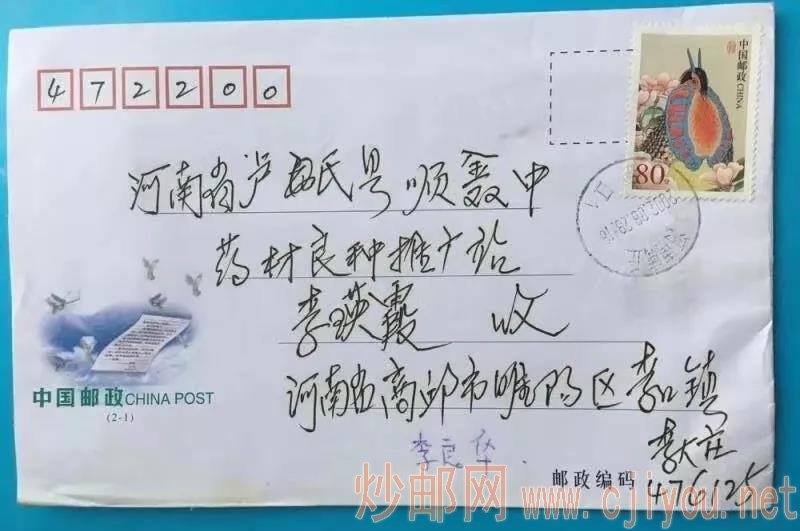 472200
中国邮政 CHINA
80分
2002.08.29.18
河南省卢氏县顺鑫中
药材良种推广站
李瑛霞 收
河南省商邱市睢阳区李口镇
李大庄
中国邮政 CHINA POST
(2-1)
李良华
邮政编码 476125
炒邮网 www.cjiyou.net